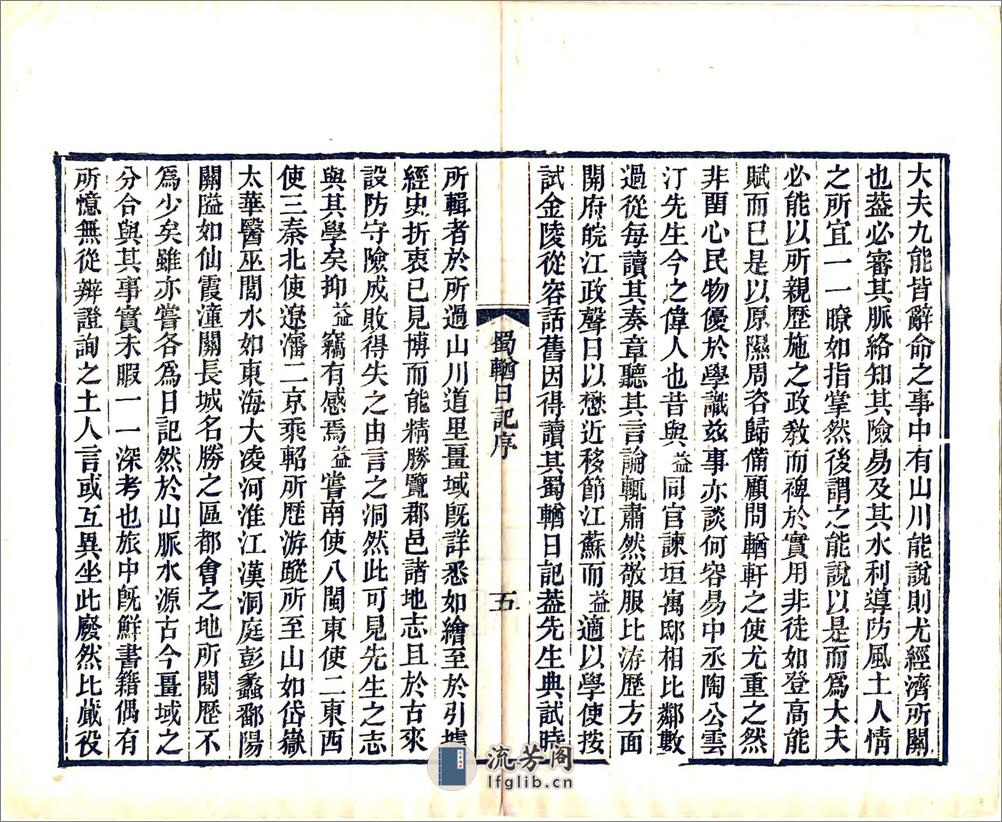 大夫九能皆辭命之事中有山川能說則尤經濟所關
也葢必審其脈絡知其險易及其水利導防風土人情
之所宜一一瞭如指掌然後謂之能說以是而爲大夫
必能以所親歷施之政敎而裨於實用非徒如登高能
賦而已是以原隰周咨歸備顧問輶軒之使尤重之然
非畱心民物優於學識兹事亦談何容易中丞陶公雲
汀先生今之偉人也昔與益同官諫垣寓邸相比鄰數
過從每讀其奏章聽其言論輒肅然敬服比游歷方面
開府皖江政聲日以懋近移節江蘇而益適以學使按
試金陵從容話舊因得讀其蜀輶日記葢先生典試時
蜀輶日記序
五
所輯者於所過山川道里畺域旣詳悉如繪至於引據
經史折衷已見博而能精勝覽郡邑諸地志且於古來
設防守險成敗得失之由言之洞然此可見先生之志
與其學矣抑益竊有感焉益嘗南使八閩東使二東西
使三秦北使遼瀋二京乘軺所歷游蹤所至山如岱嶽
太華醫巫閭水如東海大凌河淮江漢洞庭彭蠡鄱陽
關隘如仙霞潼關長城名勝之區都會之地所閱歷不
爲少矣雖亦嘗各爲日記然於山脈水源古今畺域之
分合與其事實未暇一一深考也旅中旣鮮書籍偶有
所憶無從辨證詢之土人言或互異坐此廢然比歲役
流芳阁
lfglib.cn